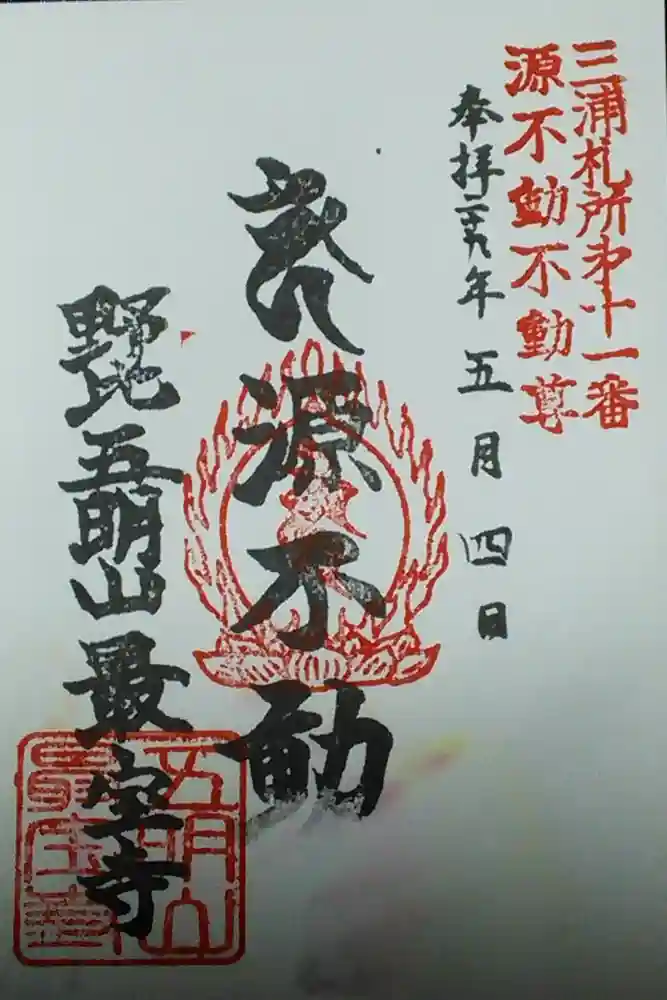 三浦札所第十一番
源不動不動尊
奉拝 二十九年 五月 四日
源不動
野比 五明山 最宝寺
五明山
最宝寺